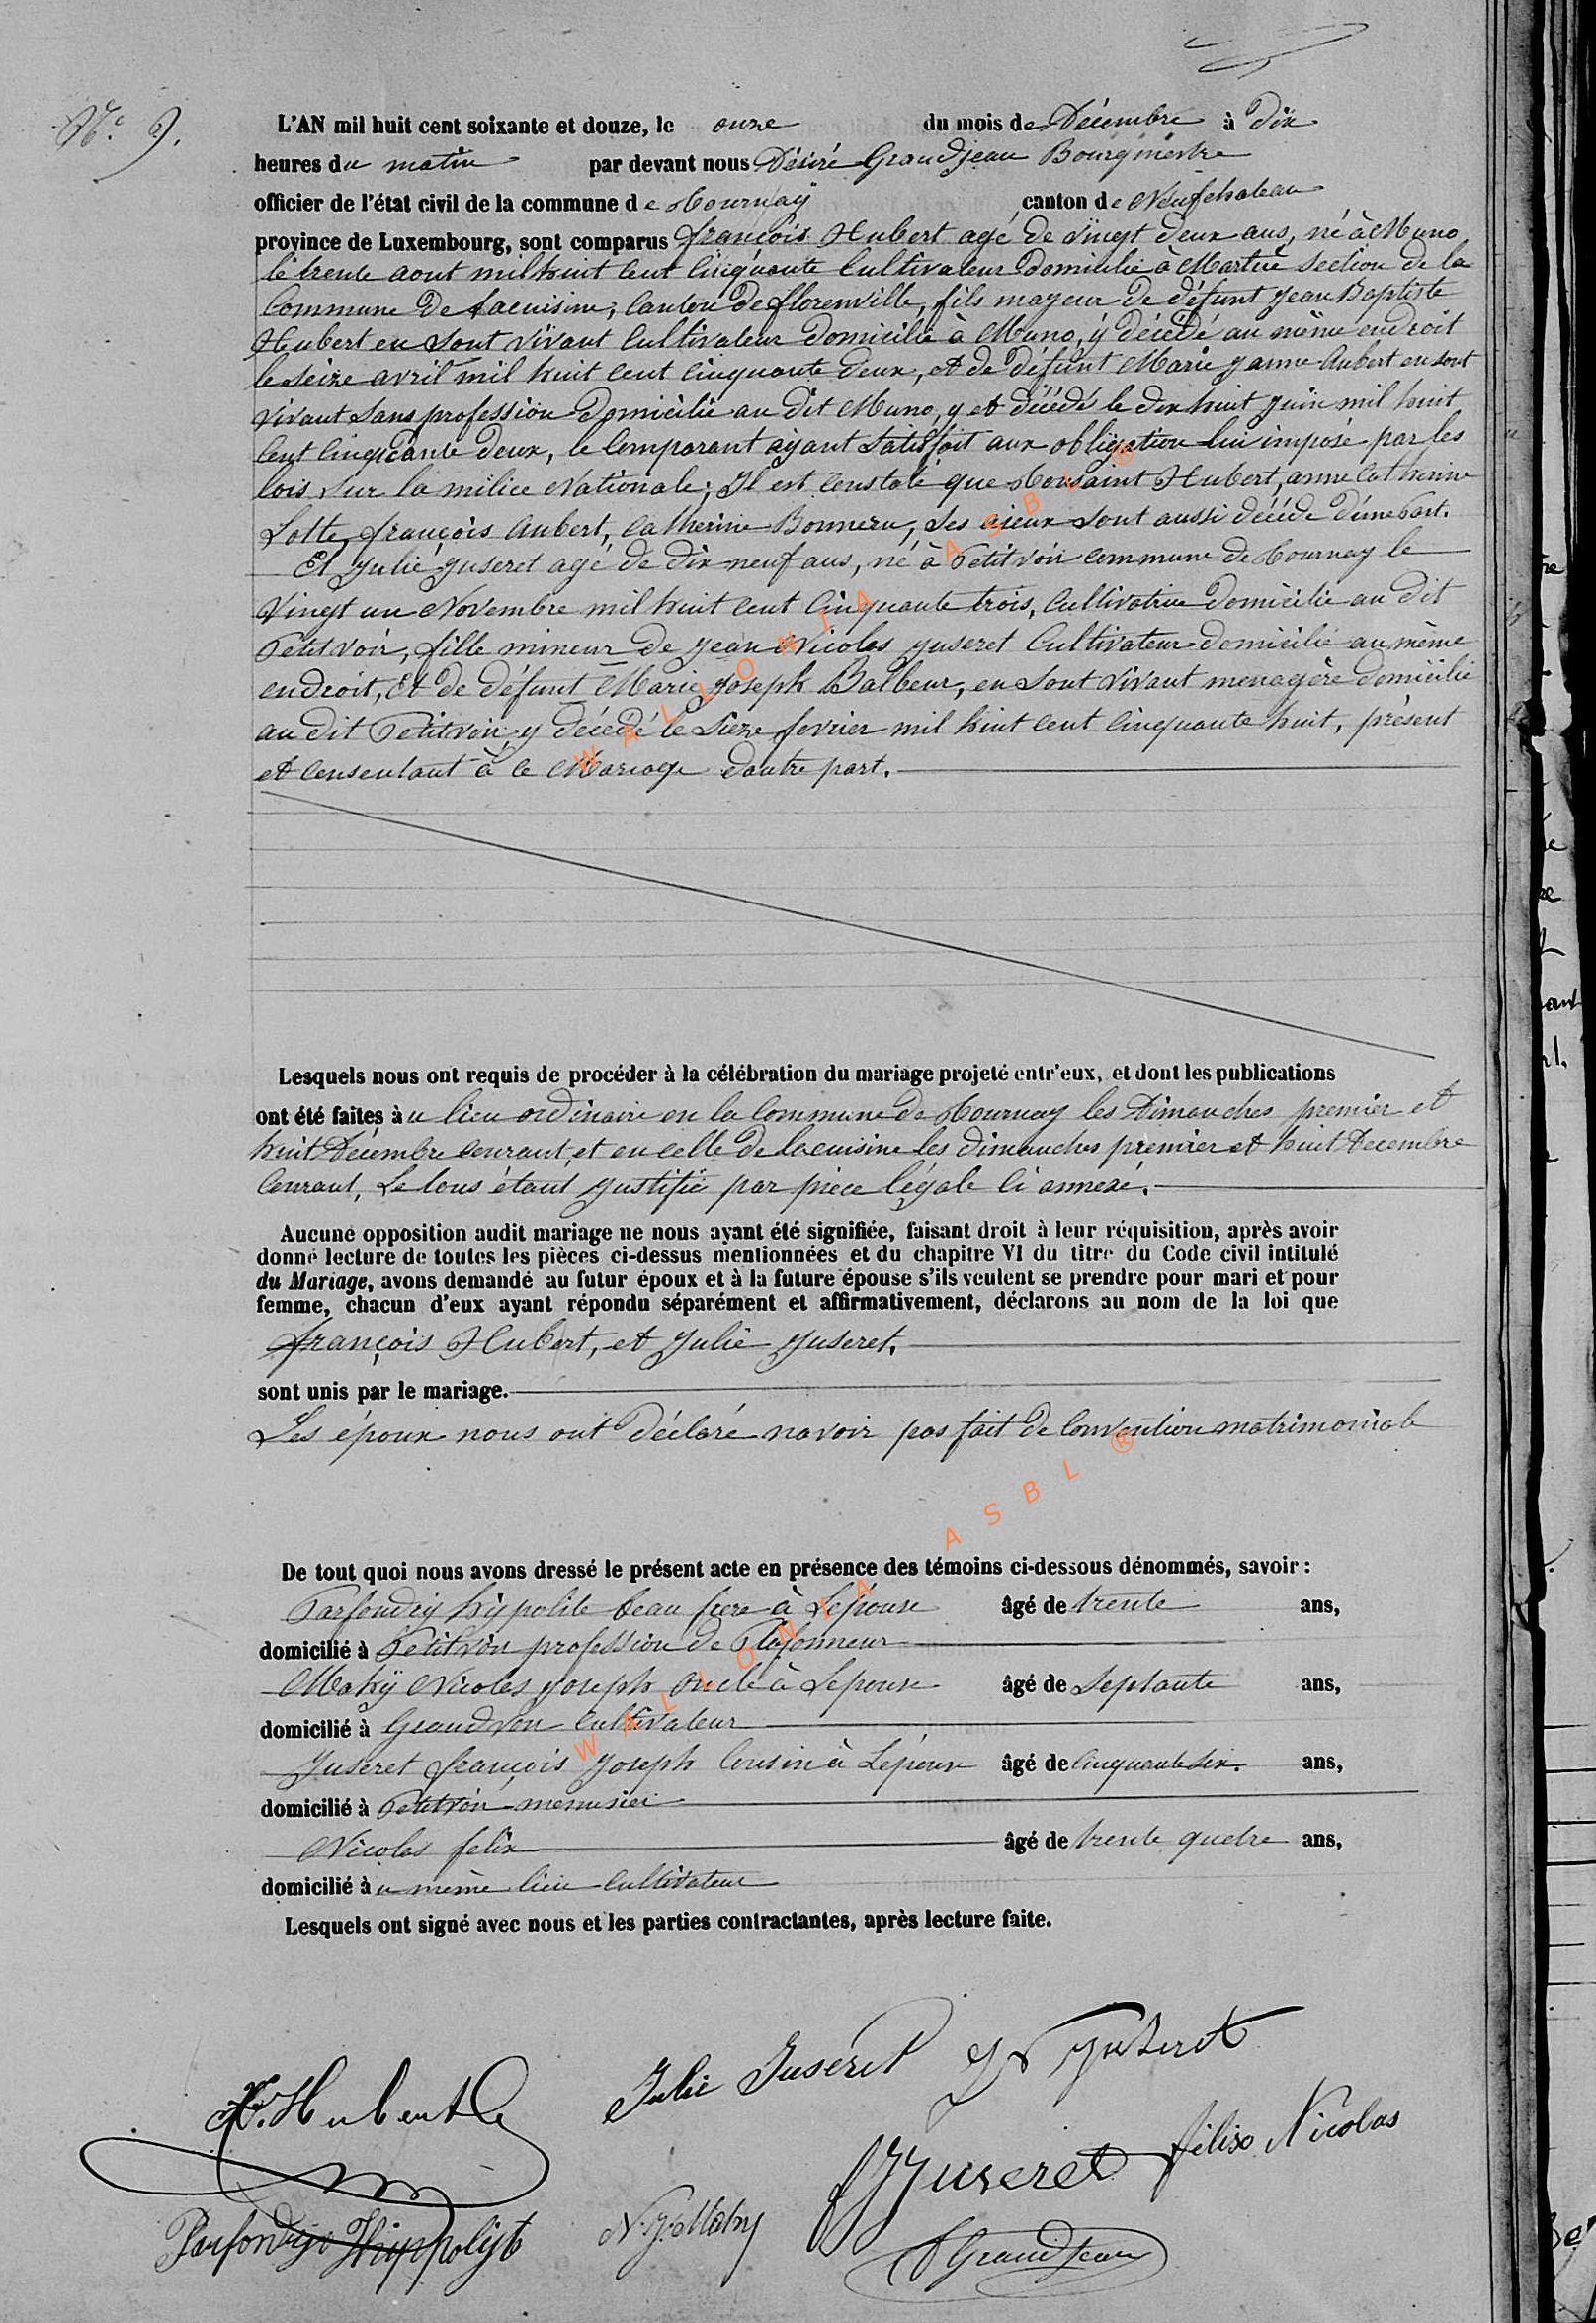 N.º 9.
L'AN mil huit cent soixante et douze, le onze du mois de Décembre à dix
heures du matin par devant nous Désiré Grandjean Bourgmestre
officier de l'état civil de la commune de Tournay canton de Neufchateau
province de Luxembourg, sont comparus françois Hubert agé de vingt deux ans, né à Muno
le trente aout mil huit cent cinquante Cultivateur domicilié à Martué section de la
Commune de Lacuisine, Canton de florenville, fils majeur de défunt Jean Baptiste
Hubert en sont vivant Cultivateur domicilié à Muno, y décédé au même endroit
le seize avril mil huit cent cinquante deux, et de défunt Marie Janne Aubert en sont
vivant sans profession domicilié au dit Muno, y et décédé le dix huit Juin mil huit
Cent Cinquante deux, le Comparant ayant satisfait aux obligation lui imposé par les
lois sur la milice Nationale; Il est Constaté que Tousaint Hubert, anne Catherine
Lotte, françois Aubert, Catherine Bonneru, ses aieux sont aussi décédé d'une Part.
Et Julie Juseret agé de dix neuf ans, né à Petitvoir commune de Tournay le
Vingt un Novembre mil huit cent Cinquante trois, Cultivatrice domicilié au dit
Petitvoir, fille mineur de Jean Nicolas Juseret Cultivateur domicilié au même
endroit, Et de défunt Marie Joseph Balbeur, en sont vivant menagère domicilié
au dit Petitvoir y décédé le Sieze fevrier mil huit cent Cinquante huit, présent
et Consentant à ce Mariage d'autre part.
Lesquels nous ont requis de procéder à la célébration du mariage projeté entr'eux, et dont les publications
ont été faites àu lieu ordinaire en la Commune de Tournay les Dimanches premier et
huit Décembre Courant, et en celle de lacuisine les dimanches premier et huit Decembre
Courant, Le tous étant justifié par pièce légale Ci annexé.
Aucune opposition audit mariage ne nous ayant été signifiée, faisant droit à leur réquisition, après avoir
donné lecture de toutes les pièces ci-dessus mentionnées et du chapitre VI du titre du Code civil intitulé
du Mariage, avons demandé au futur époux et à la future épouse s'ils veulent se prendre pour mari et pour
femme, chacun d'eux ayant répondu séparément et affirmativement, déclarons au nom de la loi que
françois Hubert, et Julie Juseret,
sont unis par le mariage.
Les époux nous ont déclaré navoir pas fait de Convention matrimoniale
De tout quoi nous avons dressé le présent acte en présence des témoins ci-dessous dénommés, savoir :
Parfondry hypolite beau frere à Lépouse âgé de trente ans,
domicilié à Petitvoir profession de Plafonneur
Mahÿ Nicolas Joseph oncle à Lepouse âgé de Septante ans,
domicilié à Grandvoir Cultivateur
Juseret françois Joseph Cousin à Lépouse âgé de Cinquante six. ans,
domicilié à Petitvoir menusier
Nicolas felix âgé de trente quatre ans,
domicilié àu même lieu Cultivateur
Lesquels ont signé avec nous et les parties contractantes, après lecture faite.
Hubert Julie Juseret JN Juseret
FJ Juseret félix Nicolas
Parfondry Hyppolijte N. J. Mahy Grandjean
WALLONIA ASBL ®
WALLONIA ASBL ®